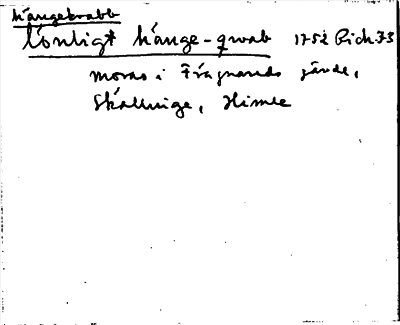 hängekrabb
lönligt hänge-qwab 1752 Rich. 73
moras i Fragnareds gärde,
Skällinge, Himle